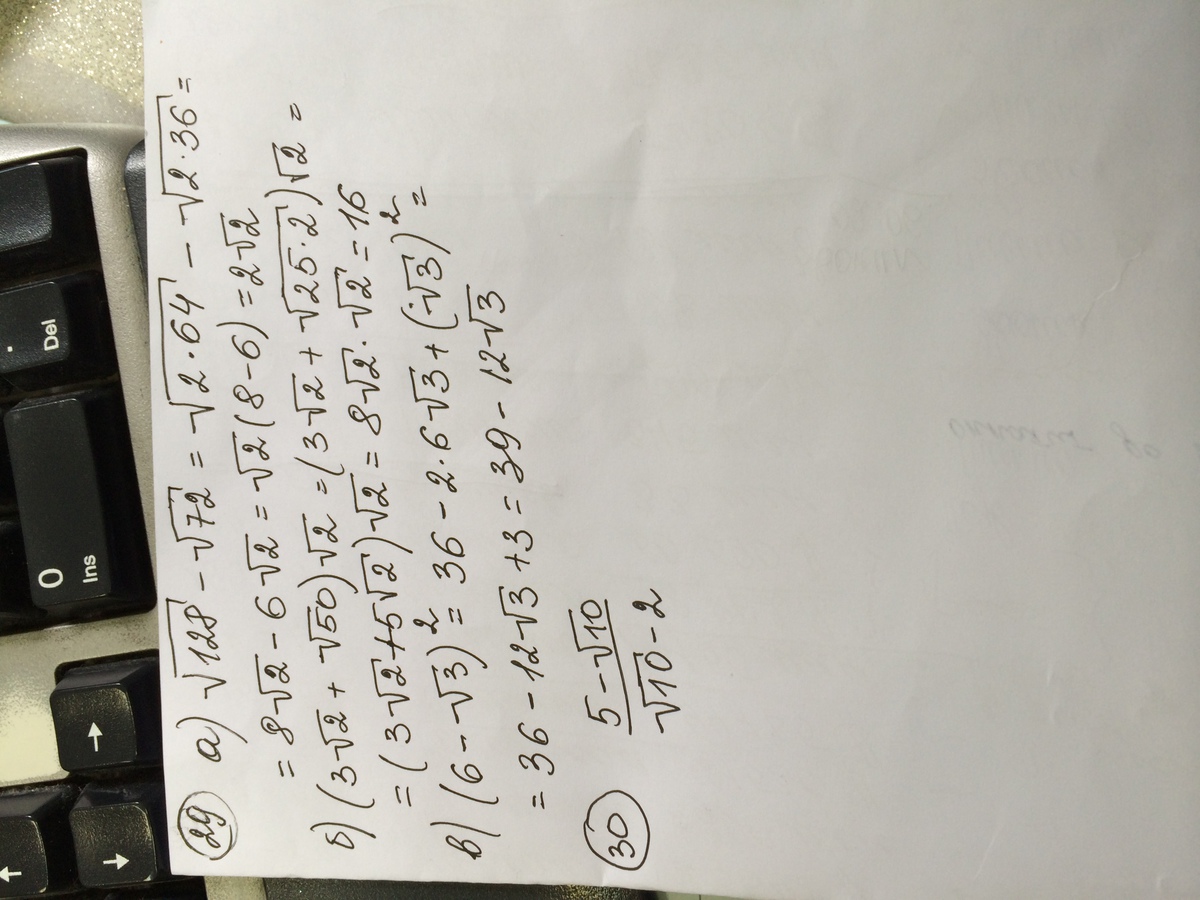 29 а) √128 - √72 = √2·64 - √2·36 =
= 8√2 - 6√2 = √2(8-6) = 2√2
б) (3√2 + √50)√2 = (3√2 + √25·2)√2 =
= (3√2+5√2)√2 = 8√2·√2 = 16
в) (6-√3)² = 36 - 2·6√3 + (√3)² =
= 36 - 12√3 + 3 = 39 - 12√3
30 5-√10
√10-2
0
Ins
.
Del